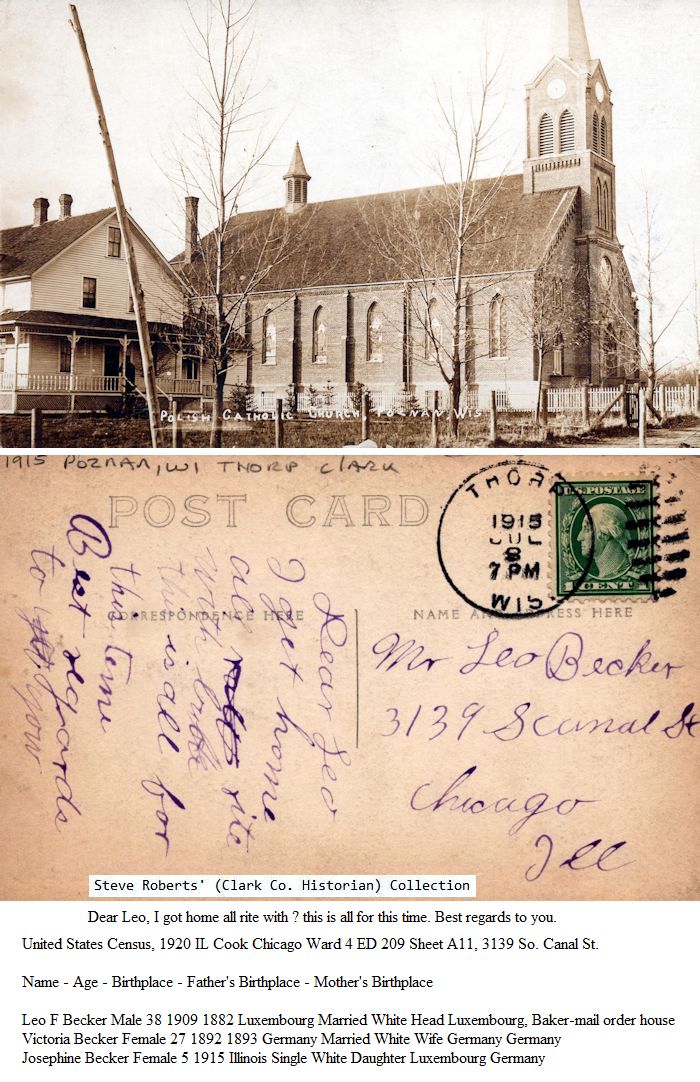 POLISH CATHOLIC CHURCH POZNAN WIS
1915 POZNAN, WI THORP CLARK
POST CARD
THORP
1915
JUL
8
7 PM
WIS
U.S. POSTAGE
1 CENT 1
CORRESPONDENCE HERE
NAME AND ADDRESS HERE
Dear Leo
I get home
all rite
with
this is all for
this time
Best regards
to you
Mr Leo Becker
3139 S canal St
Chicago
Ill
Steve Roberts' (Clark Co. Historian) Collection
Dear Leo, I got home all rite with ? this is all for this time. Best regards to you.
United States Census, 1920 IL Cook Chicago Ward 4 ED 209 Sheet A11, 3139 So. Canal St.
Name - Age - Birthplace - Father's Birthplace - Mother's Birthplace
Leo F Becker Male 38 1909 1882 Luxembourg Married White Head Luxembourg, Baker-mail order house
Victoria Becker Female 27 1892 1893 Germany Married White Wife Germany Germany
Josephine Becker Female 5 1915 Illinois Single White Daughter Luxembourg Germany